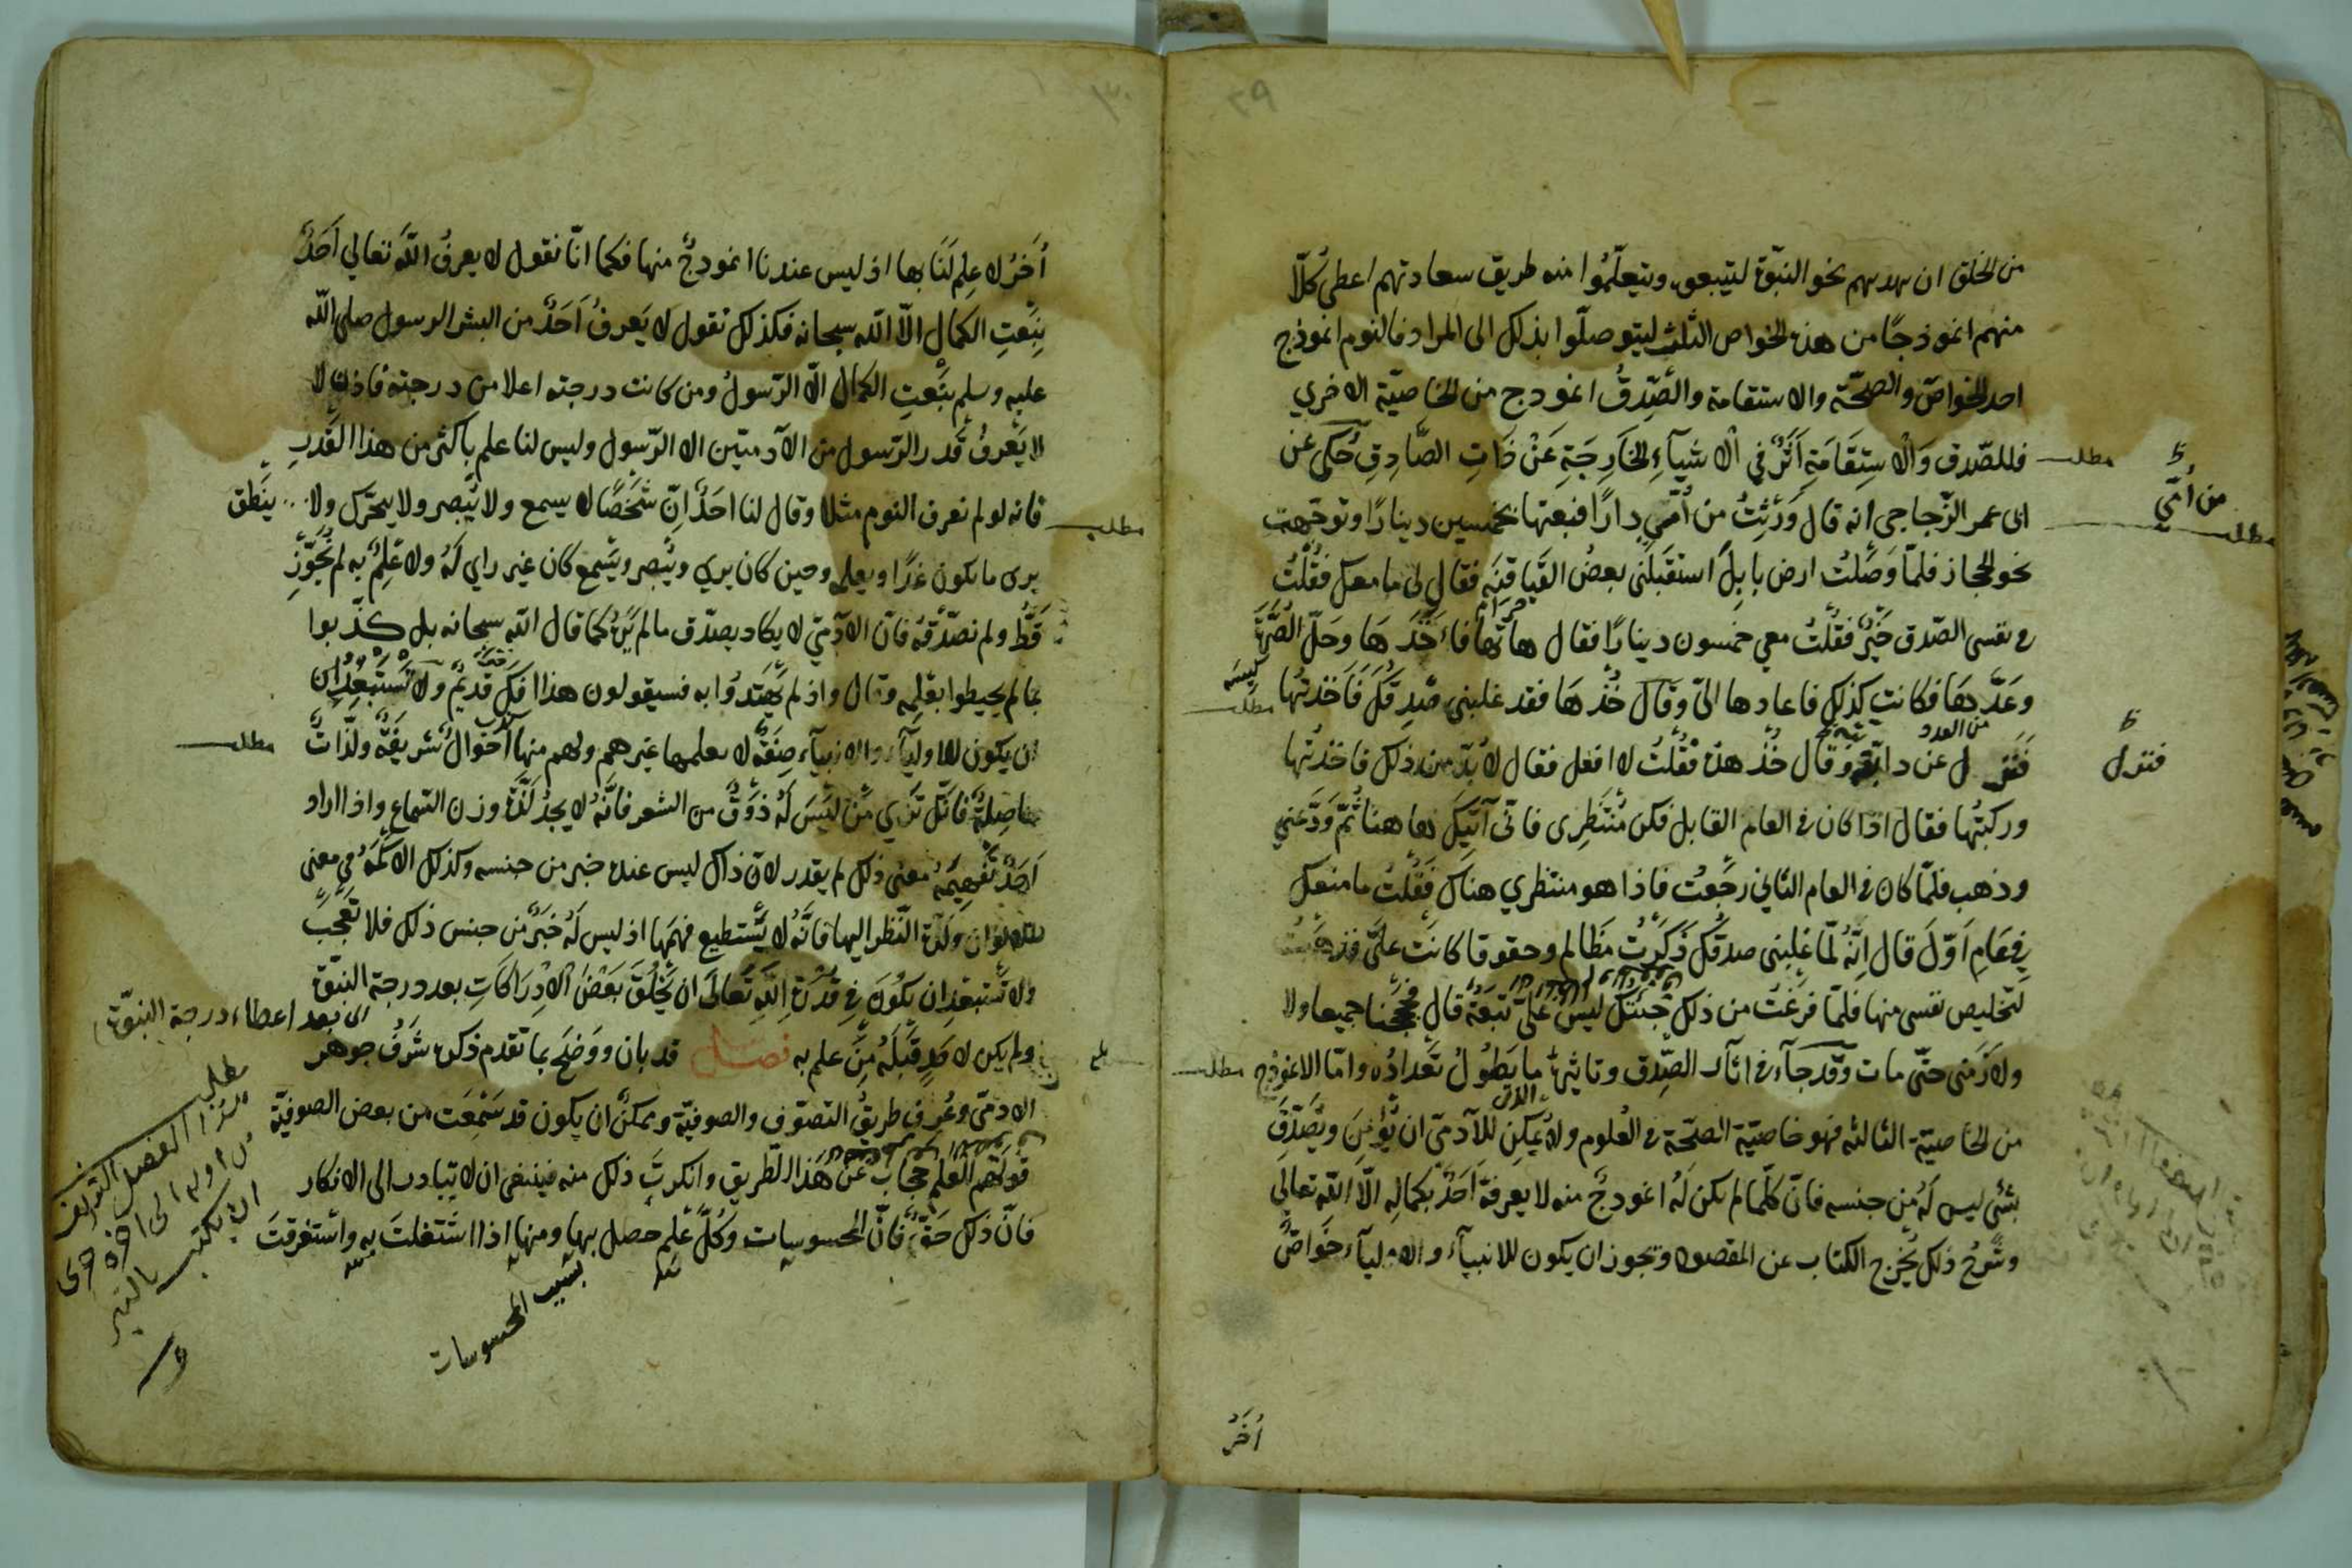 ٢٩
من الخلق ان يهديهم نحو النبوّة ليتبعوه ويتعلّمُوا منه طريق سعادتهم اعطى كلّا
منهم انموذجًا من هذه الخواص الثلث ليتوصلّوا بذلك الى المراد فالنوم انموذج
احد الخواصّ والصحّة والاستقامة والصِّدقُ انموذج من الخاصيّة الاخري
فللصّدق وَالْاسِتِقَامَةِ اَثَرٌ في الْاشيآءِ الخَارِجَةِ عَنْ ذَاتِ الصَّادِقِ حُكى عَن
مطلب
ابى عمر الزّجاجى انه قال وَرثتُ من أُمّي دارًا فبعتها بخمسين دينارًا وتوجّهت
من أُمّي
مطلب
نحو الحجاز فلمّا وَصَلتُ ارض بابِلَ استقبَلَنى بعضُ القَيافنَه فقال لى ما معك فقُلْتُ
فى نفسى الصّدق خَيْرٌ فقُلْتُ معي خمسون دينارًا فقال هاتها فاَخَذَهَا وحَلّ الصُّرَّة
وَعَدَّهَا فكانت كذلك فاعادها الىّ وقال خُذهَا فقد غلبنى صِدقُكَ فَاَخذتُها
كيسه
مطلب
فَنَزل عن دابّته وَقال خُذ هذه فقُلْتُ لا افعل فقال لا بُدّ من ذلك فاخذتُها
فنزل
وركبتُها فقال اذا كان فى العام القابل فكن مُنتَظِرى فانّى آتيك هاهنا ثُمّ وَدّعَنى
وذهب فلمّا كان فى العام الثانى رجَعت فاذا هو منتظري هناك فقُلْتُ ما منعك
فِي عَامِ اَوّلَ قال اِنّهُ لمّا غلبنى صدقُك ذَكَرتُ مَظالم وحقوقا كانَت علىّ فذهَبْتُ
لتخليص نفسى منها فلمّا فرغتُ من ذلك جئتُك ليسَ علىّ تَبِعَةٌ قال فحَجَجْنا جميعا ولا
ولازَمَنى حتّى مات وَقَد جآء فى اثآر الصِّدق وتاثيرِه ما يَطُولُ تَعدادُه وامّا الانموذج
مطلب
من الخاصيّة الثالثه فهو خاصيّة الصحّة فى العُلوم ولا يُمكِن للآدمىّ ان يُؤمِنَ ويُصَدّقَ
بشئ ليس لَهُ من جنسه فانّ كلّما لم يكن لَهُ انموذجٌ منه لا يعرفه اَحَدٌ بكمالِه الّا الله تعالى
وشرحُ ذلك يُخرج الكتاب عن المقصود ويجوز ان يكون للانبيآء والاوليآء خَواصٌّ
اُخَرُ
٣٠
اُخَرُ لا عِلمَ لَنَا بها اذ ليس عندنا انموذجٌ منها فكما انّا نقول لا يعرفُ اللّه تعالي اَحَدٌ
بِنَعتِ الكمال الّا اللّه سبحانه فكذلك نقول لا يَعرفُ اَحَدٌ من البشر الرسول صلى اللّه
عليه وسلم بنَعتِ الكمال الّا الرّسولُ ومن كانت درجته اعلا من درجته فاذن لا
لا يَعْرفُ قَدر الرّسول من الآدميّين الا الرّسول وليس لنا علم باكثر من هذا القَدرِ
فانه لو لم نعرف النوم مثلا وقال لنا احَدٌ اِنّ شَخَصًا لا يسمع ولا يُبصر ولا يتحرّك ولا ينطق
مطلب
يرى ما يكون غدًا ويعلم وحين كان يري ويُبصر ويَسمع كان غير راي لَهُ ولا عِلمٌ به لم نُجَوّز
قَطُّ ولم نصدّقهُ فانّ الآدمّيَ لا يكاد يصدّق ما لم يَرَ كما قال الله سبحانه بل كذّبوا
بما لم يحيطوا بعلمه وقال واذ لم يَهتدُوا به فسيقولون هذا افكٌ قديمٌ ولا تَستبعِدْ ان
ان يكون للاوليآء والانبيآء صِفَةٌ لا يعلمها غيرهم ولهم منها اَحوالٌ شريفَةٌ ولذّاتٌ
مطلب
فاصِلةٌ فانّك تَري مَن ليَسَ لَهُ ذوقٌ من الشعر فانّهُ لا يجدُ لَذّة وزن السّماع واذا اراد
اَحَدٌ تَفهِيمَهُ معنى ذلك لم يقدر لانّ ذاك ليس عنده خبر من جنسه وكذلك الاكمَهُ فى معنى
الالوان ولَذّة النّظر اليها فانّهُ لا يَستطيع فهَمها اذ ليس لَهُ خبَرٌ من جنس ذلك فلا تَعَجّب
ولا تَستبعِد ان يكُونَ فِي قُدْرَة اللّهِ تَعالَى ان يَخلُقَ بَعْضَ الْاِدرَاكَاتِ بعد درجة النبوّة
اى بعد اعطاء درجة النبوّة
ولم يكن لاحَدٍ قَبلَهُ مِنَ علم به فصل قد بان ووَضَحَ بما تقدم ذكره شَرَفُ جوهر
بلغ
الادمىّ وعُرِفَ طريقُ التصوّف والصوفيّة ويمكنُ ان يكون قد سَمعَت من بعض الصوفيّة
قولَهُم العلم حجابٌ عَنْ هَذا الطّريق وانكرتَ ذلك منه فينبغى ان لا تبادر الى الانكار
فانّ ذلك حَقٌّ فانّ المحسوسات وكُلّ عِلمٍ حصل بها ومنها اذا اشتَغلتَ به واستغرقتَ
بسبب المحسوسات
مطلب
هذا الفصل
من اوله الى اخره حرى
ان يكتب بالتبر